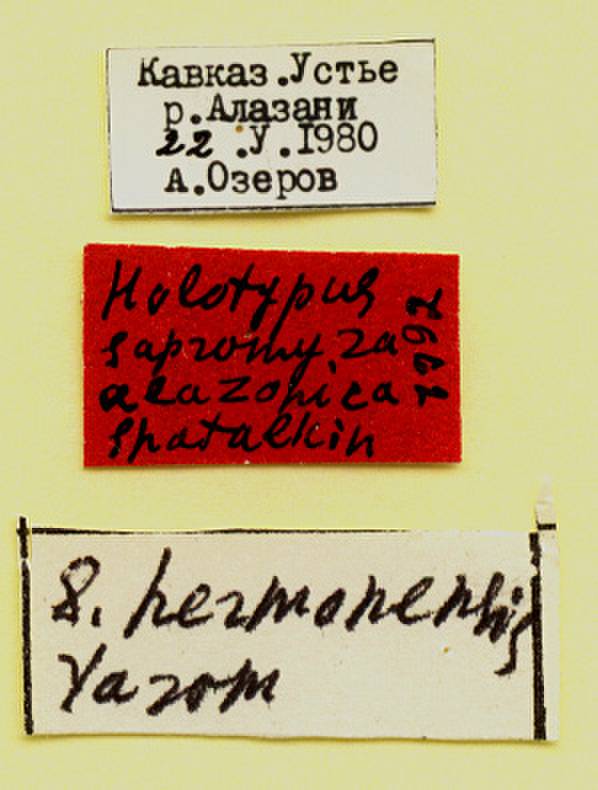 Кавказ.Устье
р.Алазани
22.У.I980
А.Озеров
Holotypus
Sapromyza
alazonica
Shatalkin
S. hermonensis
Yarom